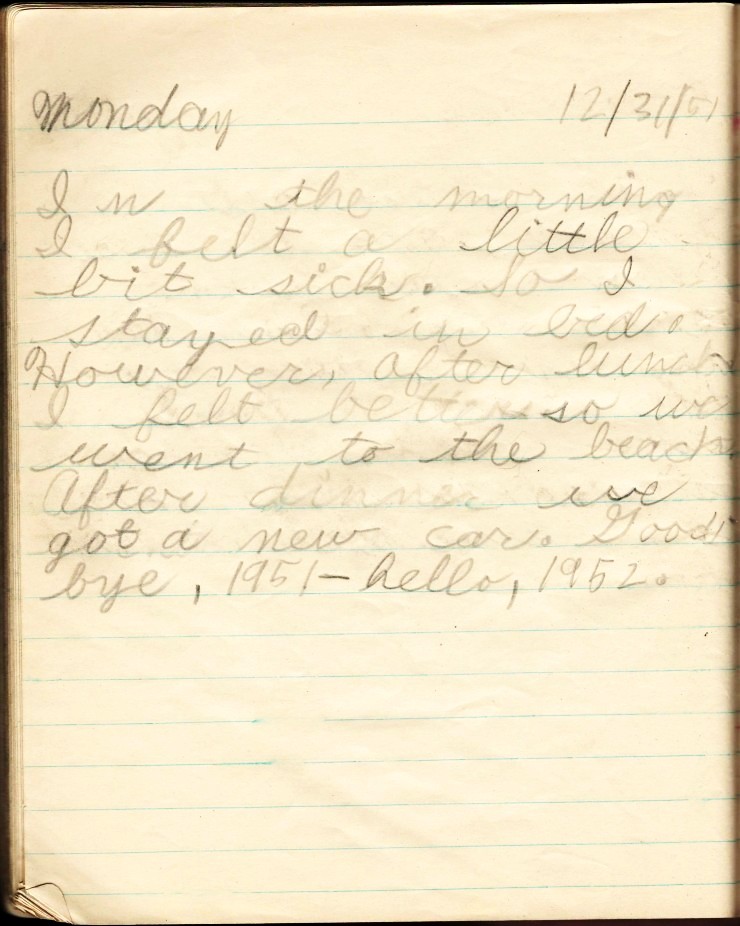 Monday 12/31/51
In the morning
I felt a little
bit sick. So I
stayed in bed.
However, after lunch
I felt better so we
went to the beach.
After dinner we
got a new car. Good
bye, 1951-hello, 1952.